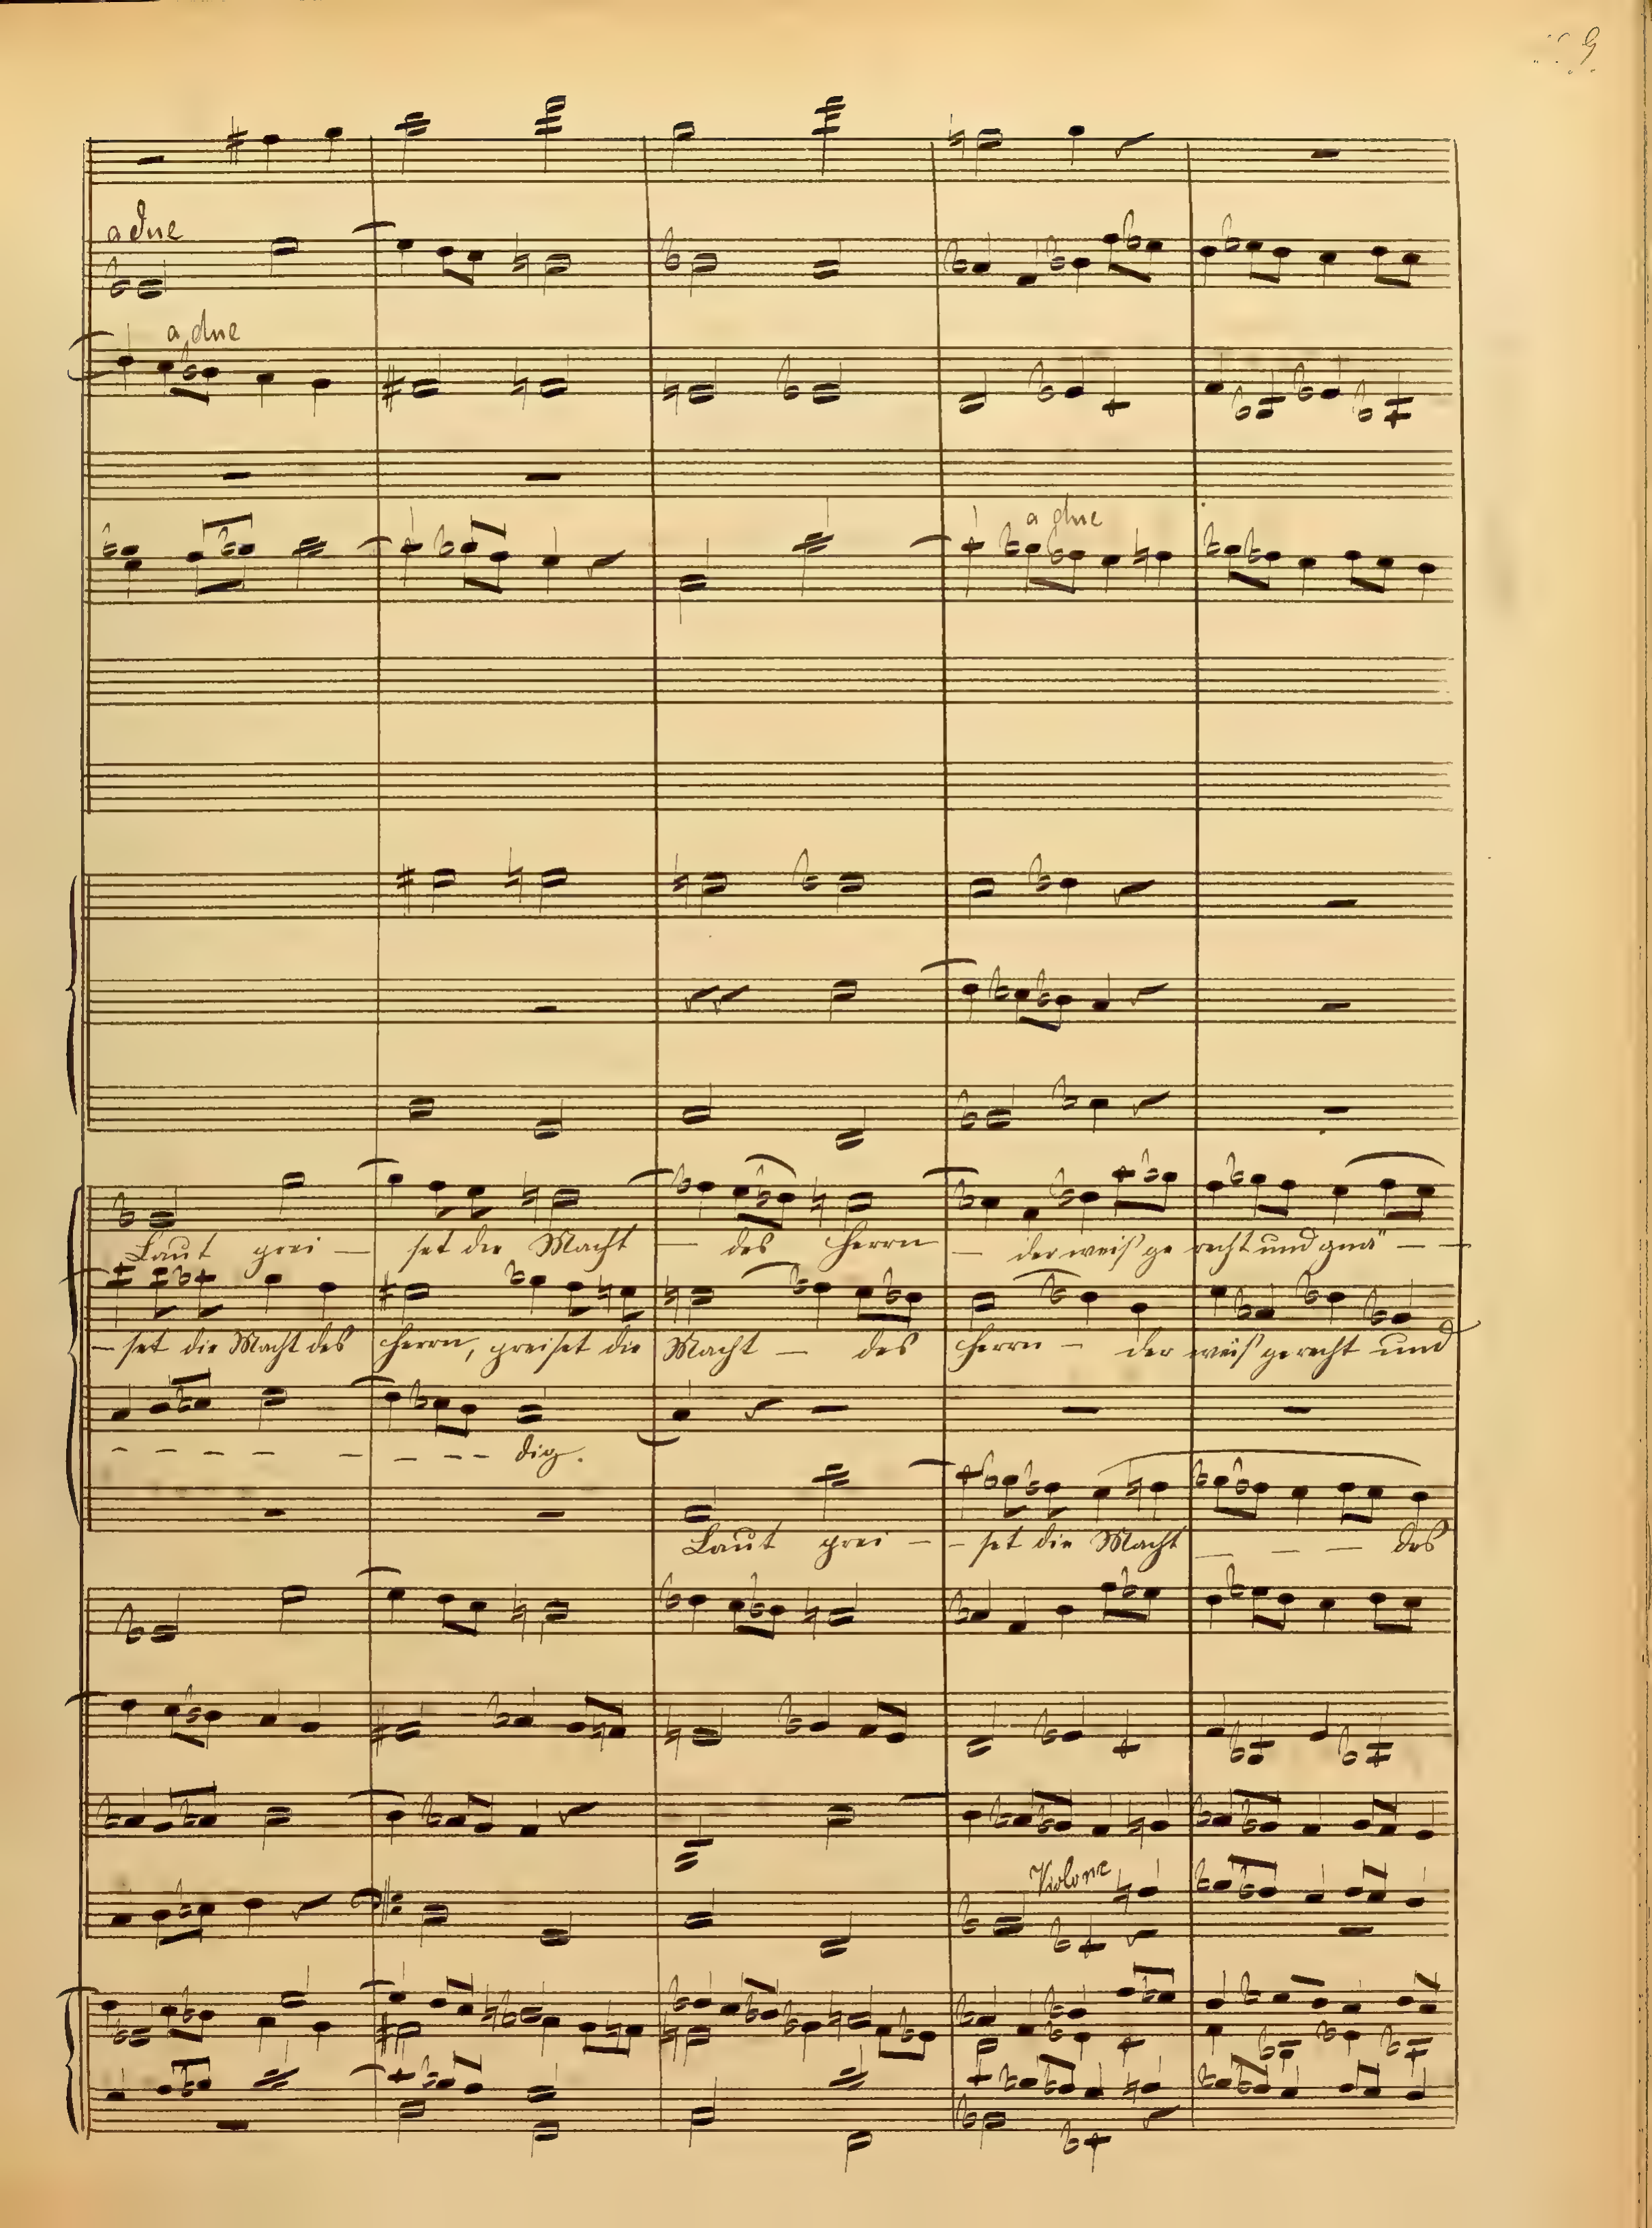 9
a due
a due
a due
Laut prei — set die Macht — des Herrn — der weis ge recht und gnä - -
- set die Macht des Herrn, preiset die Macht — des Herrn - der weis gerecht und
- - - - - - - - dig.
Laut prei - - set die Macht - - - - des
Violone